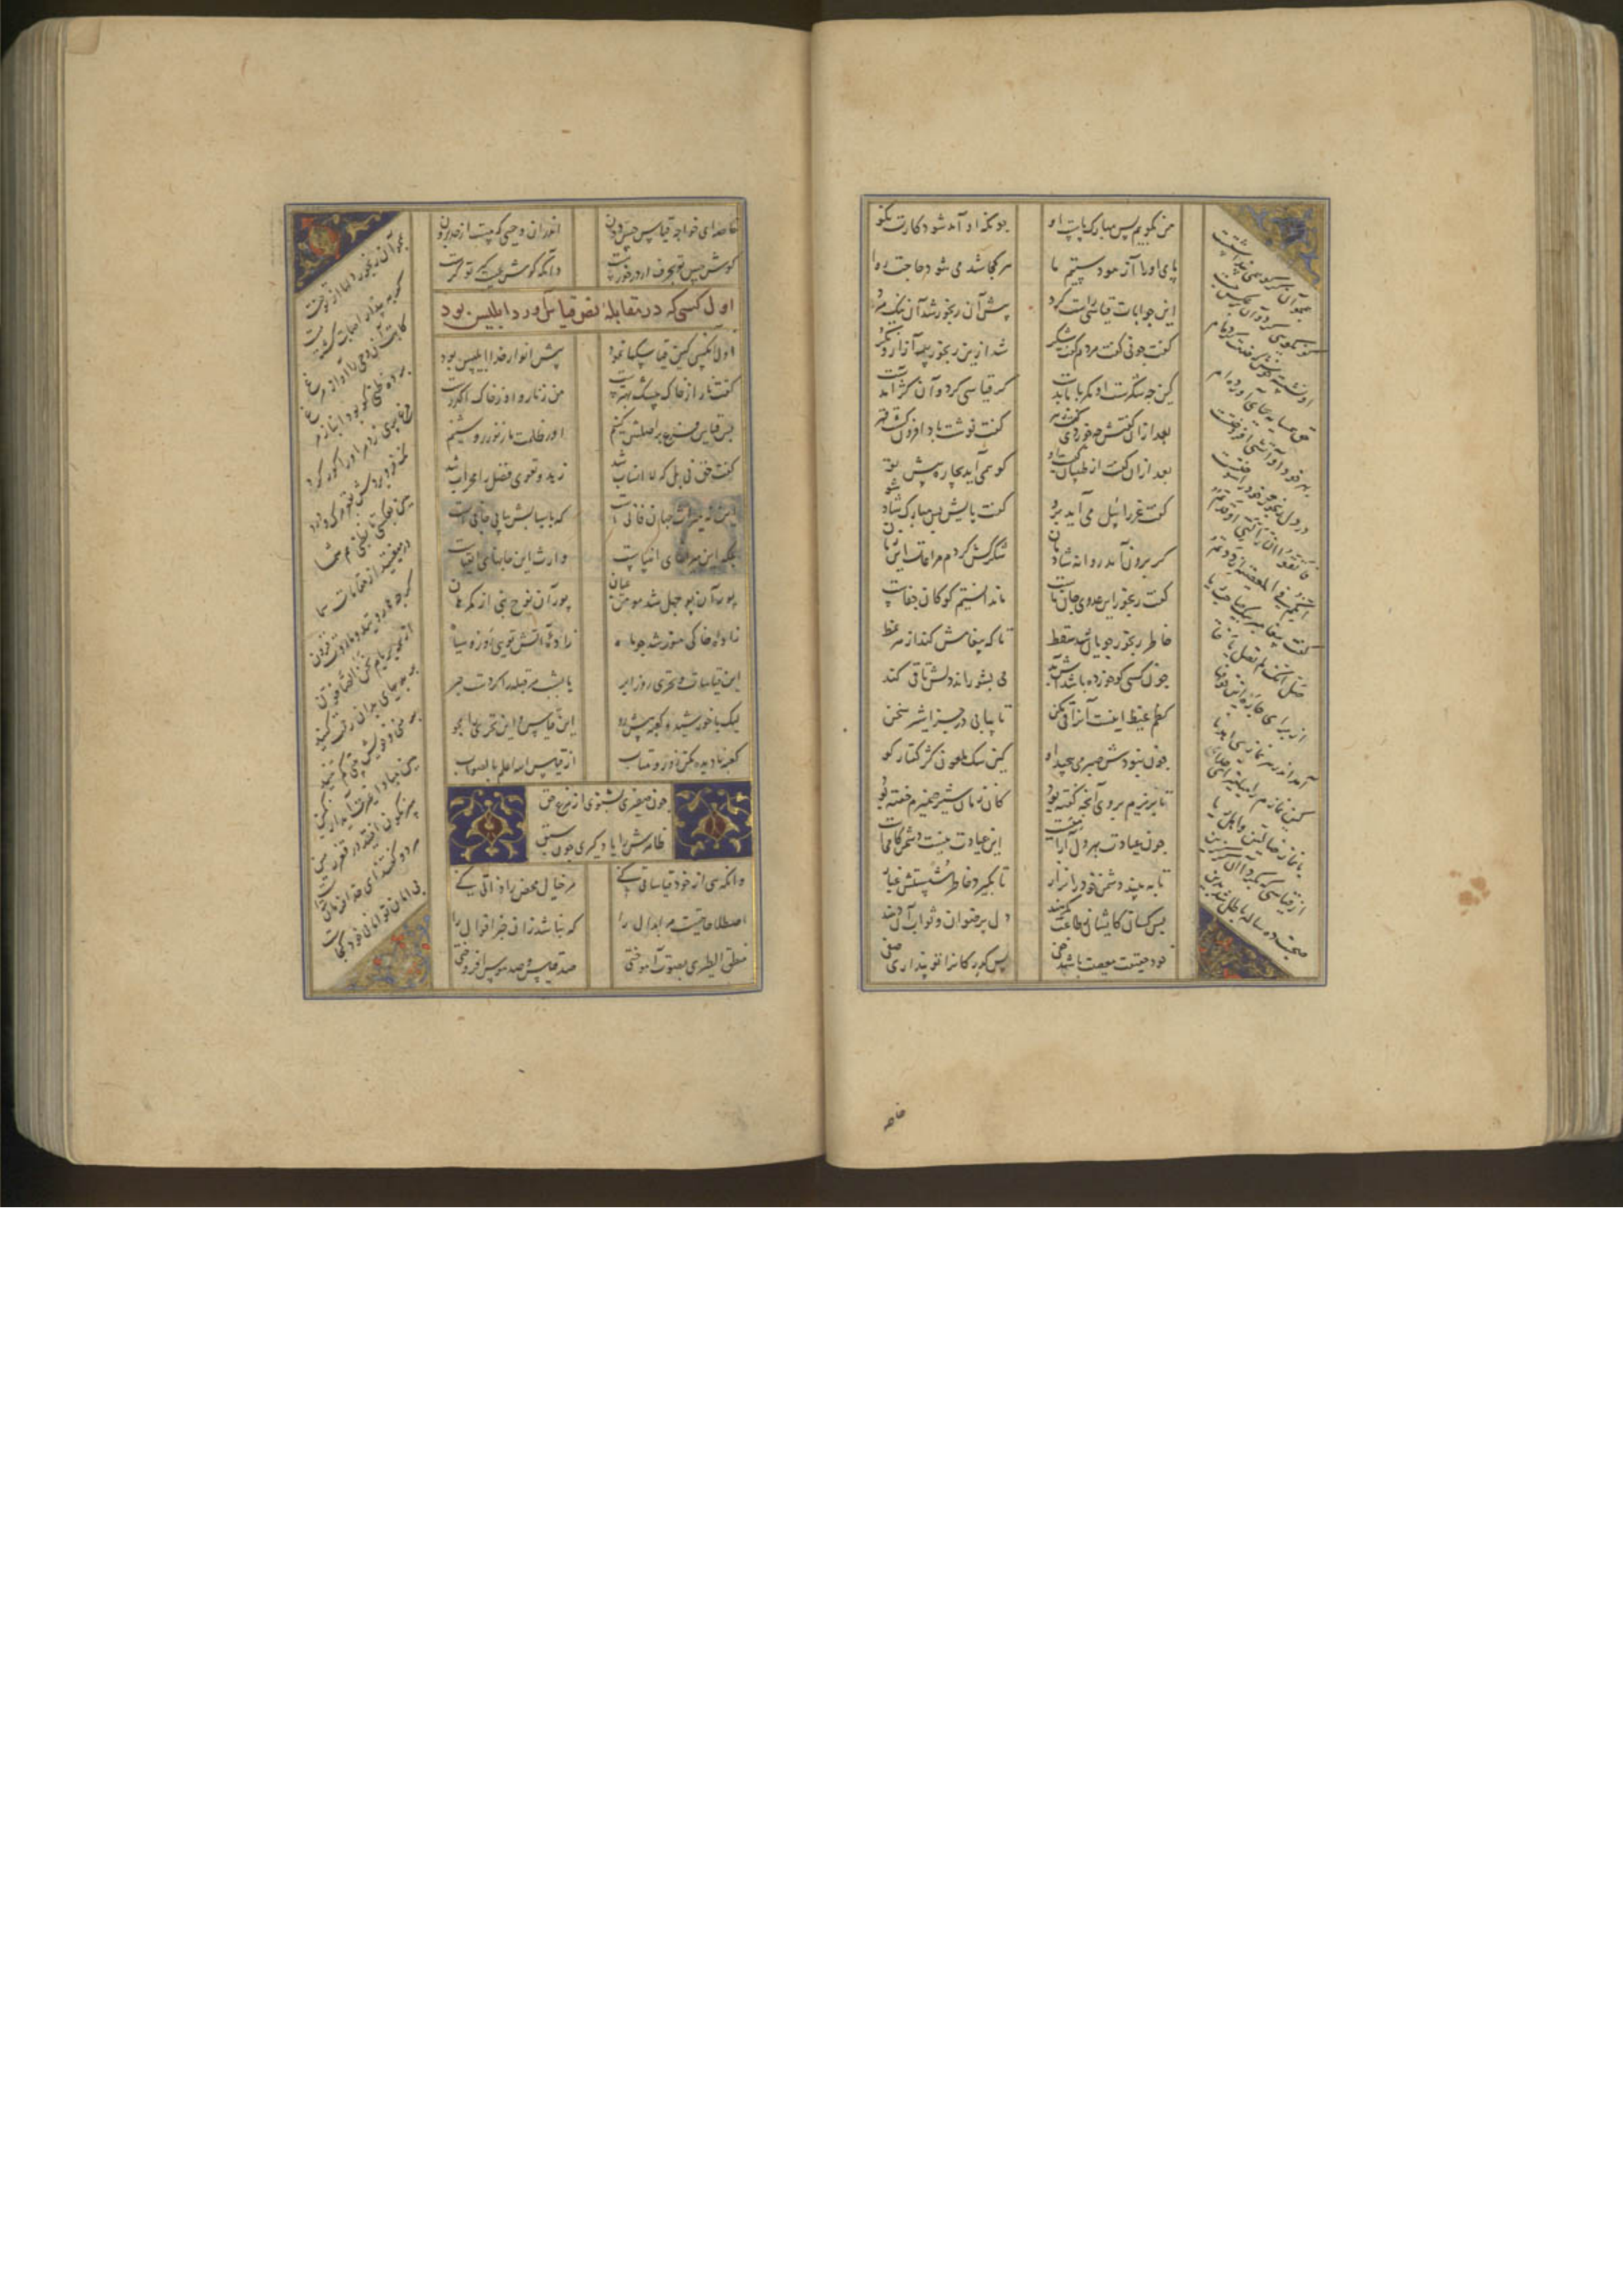 من بگویم بس مبارک پاست او چونکه او آمد شود کارت نکو
پای او را آزمودستیم ما هر کجا شد می شود حاجت روا
این جوابات قیاسی راست کرد پیش آن رنجور شد آن نیک مرد
گفت چونی گفت مردم گفت شکر شد ازین رنجور پر آزار و نکر
کین چه شکرست او مگر با ما بدست کر قیاسی کرد و آن کژ آمدست
بعد از آن گفتش چه خوردی گفت زهر گفت نوشت باد افزون گشت قهر
بعد از آن گفت از طبیبان کیست او کو همی آید بچاره پیش تو
گفت عزرائیل می آید برو گفت پایش بس مبارک شاد شو
کر برون آمد روانه شادمان شکر کش کردم مراعات این زمان
گفت رنجور این عدوی جان ماست ما ندانستیم کو کان جفاست
خاطر رنجور جویان شد سقط تا که پیغامش کند از هر نمط
چون کسی کو خورده باشد آش بد می بشوراند دلش تا قی کند
کظم غیظ اینست آنرا قی مکن تا بیابی در جزا شیرین سخن
چون نبودش صبر می پیچید او کین سگ ملعون کژ گفتار کو
تا بریزم بر وی آنچه گفته بود کان زمان شیر ضمیرم خفته بود
چون عیادت بهر دل آرامیست این عیادت نیست دشمن کامیست
تا به بیند دشمن خود را نزار تا بگیرد خاطر زشتش قرار
بس کسان کایشان طاعت میکنند دل برضوان و ثواب آن دهند
خود حقیقت معصیت باشد خفی بس کدر کانرا تو پنداری صفی
همچو آن کر کو همی پنداشتست
کو نکویی کرد و آن بر عکس جست
او نشسته خوش که خدمت کرده ام
حق همسایه بجای آورده ام
بهر خود او آتشی افروختست
در دل رنجور و خود را سوختست
فاتقوا النار التی اوقدتم
انکم فی المعصیة ازددتم
گفت پیغامبر بیک صاحب ریا
صل انک لم تصل یا فتی
از برای چاره این خوفها
آمد اندر هر نمازی اهدنا
کین نمازم را میامیز ای خدا
با نماز ضالین و اهل ریا
از قیاسی که بکرد آن کر گزین
صحبت ده ساله باطل شد بدین
خاصه
خاصه ای خواجه قیاس حس دون اندر آن وحیی که هست از حد برون
گوش حس تو بحرف ار در خورست دان که گوش غیب گیر تو کرست
اول کسی که در مقابله نص قیاس آورد ابلیس بود
اول آنکس کین قیاسکها نمود پیش انوار خدا ابلیس بود
گفت نار از خاک بیشک بهترست من ز نار و او ز خاک اکدرست
پس قیاس فرع بر اصلش کنیم او ز ظلمت ما ز نور روشنیم
گفت حق نی بل که لا انساب شد زهد و تقوی فضل را محراب شد
این نه میراث جهان فانی است که بانسابش بیابی جانی است
بلکه این میراثهای انبیاست وارث این جانهای اتقیاست
پور آن بوجهل شد مومن عیان پور آن نوح نبی از گمرهان
زاده خاکی منور شد چو ماه زاده آتش توی رو سیاه
این قیاسات و تحری روز ابر یا بشب مر قبله را کردست حبر
لیک با خورشید و کعبه پیش رو این قیاس و این تحری را مجو
کعبه نادیده مکن رو زو متاب از قیاس الله اعلم بالصواب
چون صفیری بشنوی از مرغ حق
ظاهرش را یاد گیری چون سبق
وانگهی از خود قیاساتی کنی مر خیال محض را ذاتی کنی
اصطلاحاتیست مر ابدال را که نباشد زان خبر اقوال را
منطق الطیری بصوت آموختی صد قیاس و صد هوس افروختی
همچو آن رنجور دلها از تو خست
کر به پندار اصابت گشته مست
کاتب آن وحی زان آواز مرغ
برده ظنی کو بود انباز مرغ
مرغ پری زد مر او را کور کرد
نک فرو بردش بقعر مرگ و درد
هین بعکسی یا بظنی هم شما
در میفتید از مقامات سما
گرچه هاروتید و ماروت و فزون
از همه بر بام نحن الصافون
بر بدیهای بدان رحمت کنید
بر منی و خویش بینی کم تنید
هین مبادا غیرت آید از کمین
سرنگون افتید در قعر زمین
هر دو گفتند ای خدا فرمان تراست
بی امان تو امانی خود کجاست